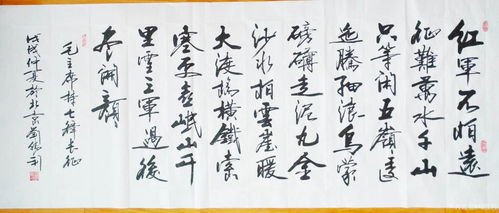 紅軍不怕遠
征難萬水千山
只等闲五嶺逶
迤騰細浪烏蒙
磅礴走泥丸金
沙水拍雲崖暖
大渡橋橫鐵索
寒更喜岷山千
里雪三軍過後
尽開顏
毛主席詩七律長征
戊戌仲夏於北京